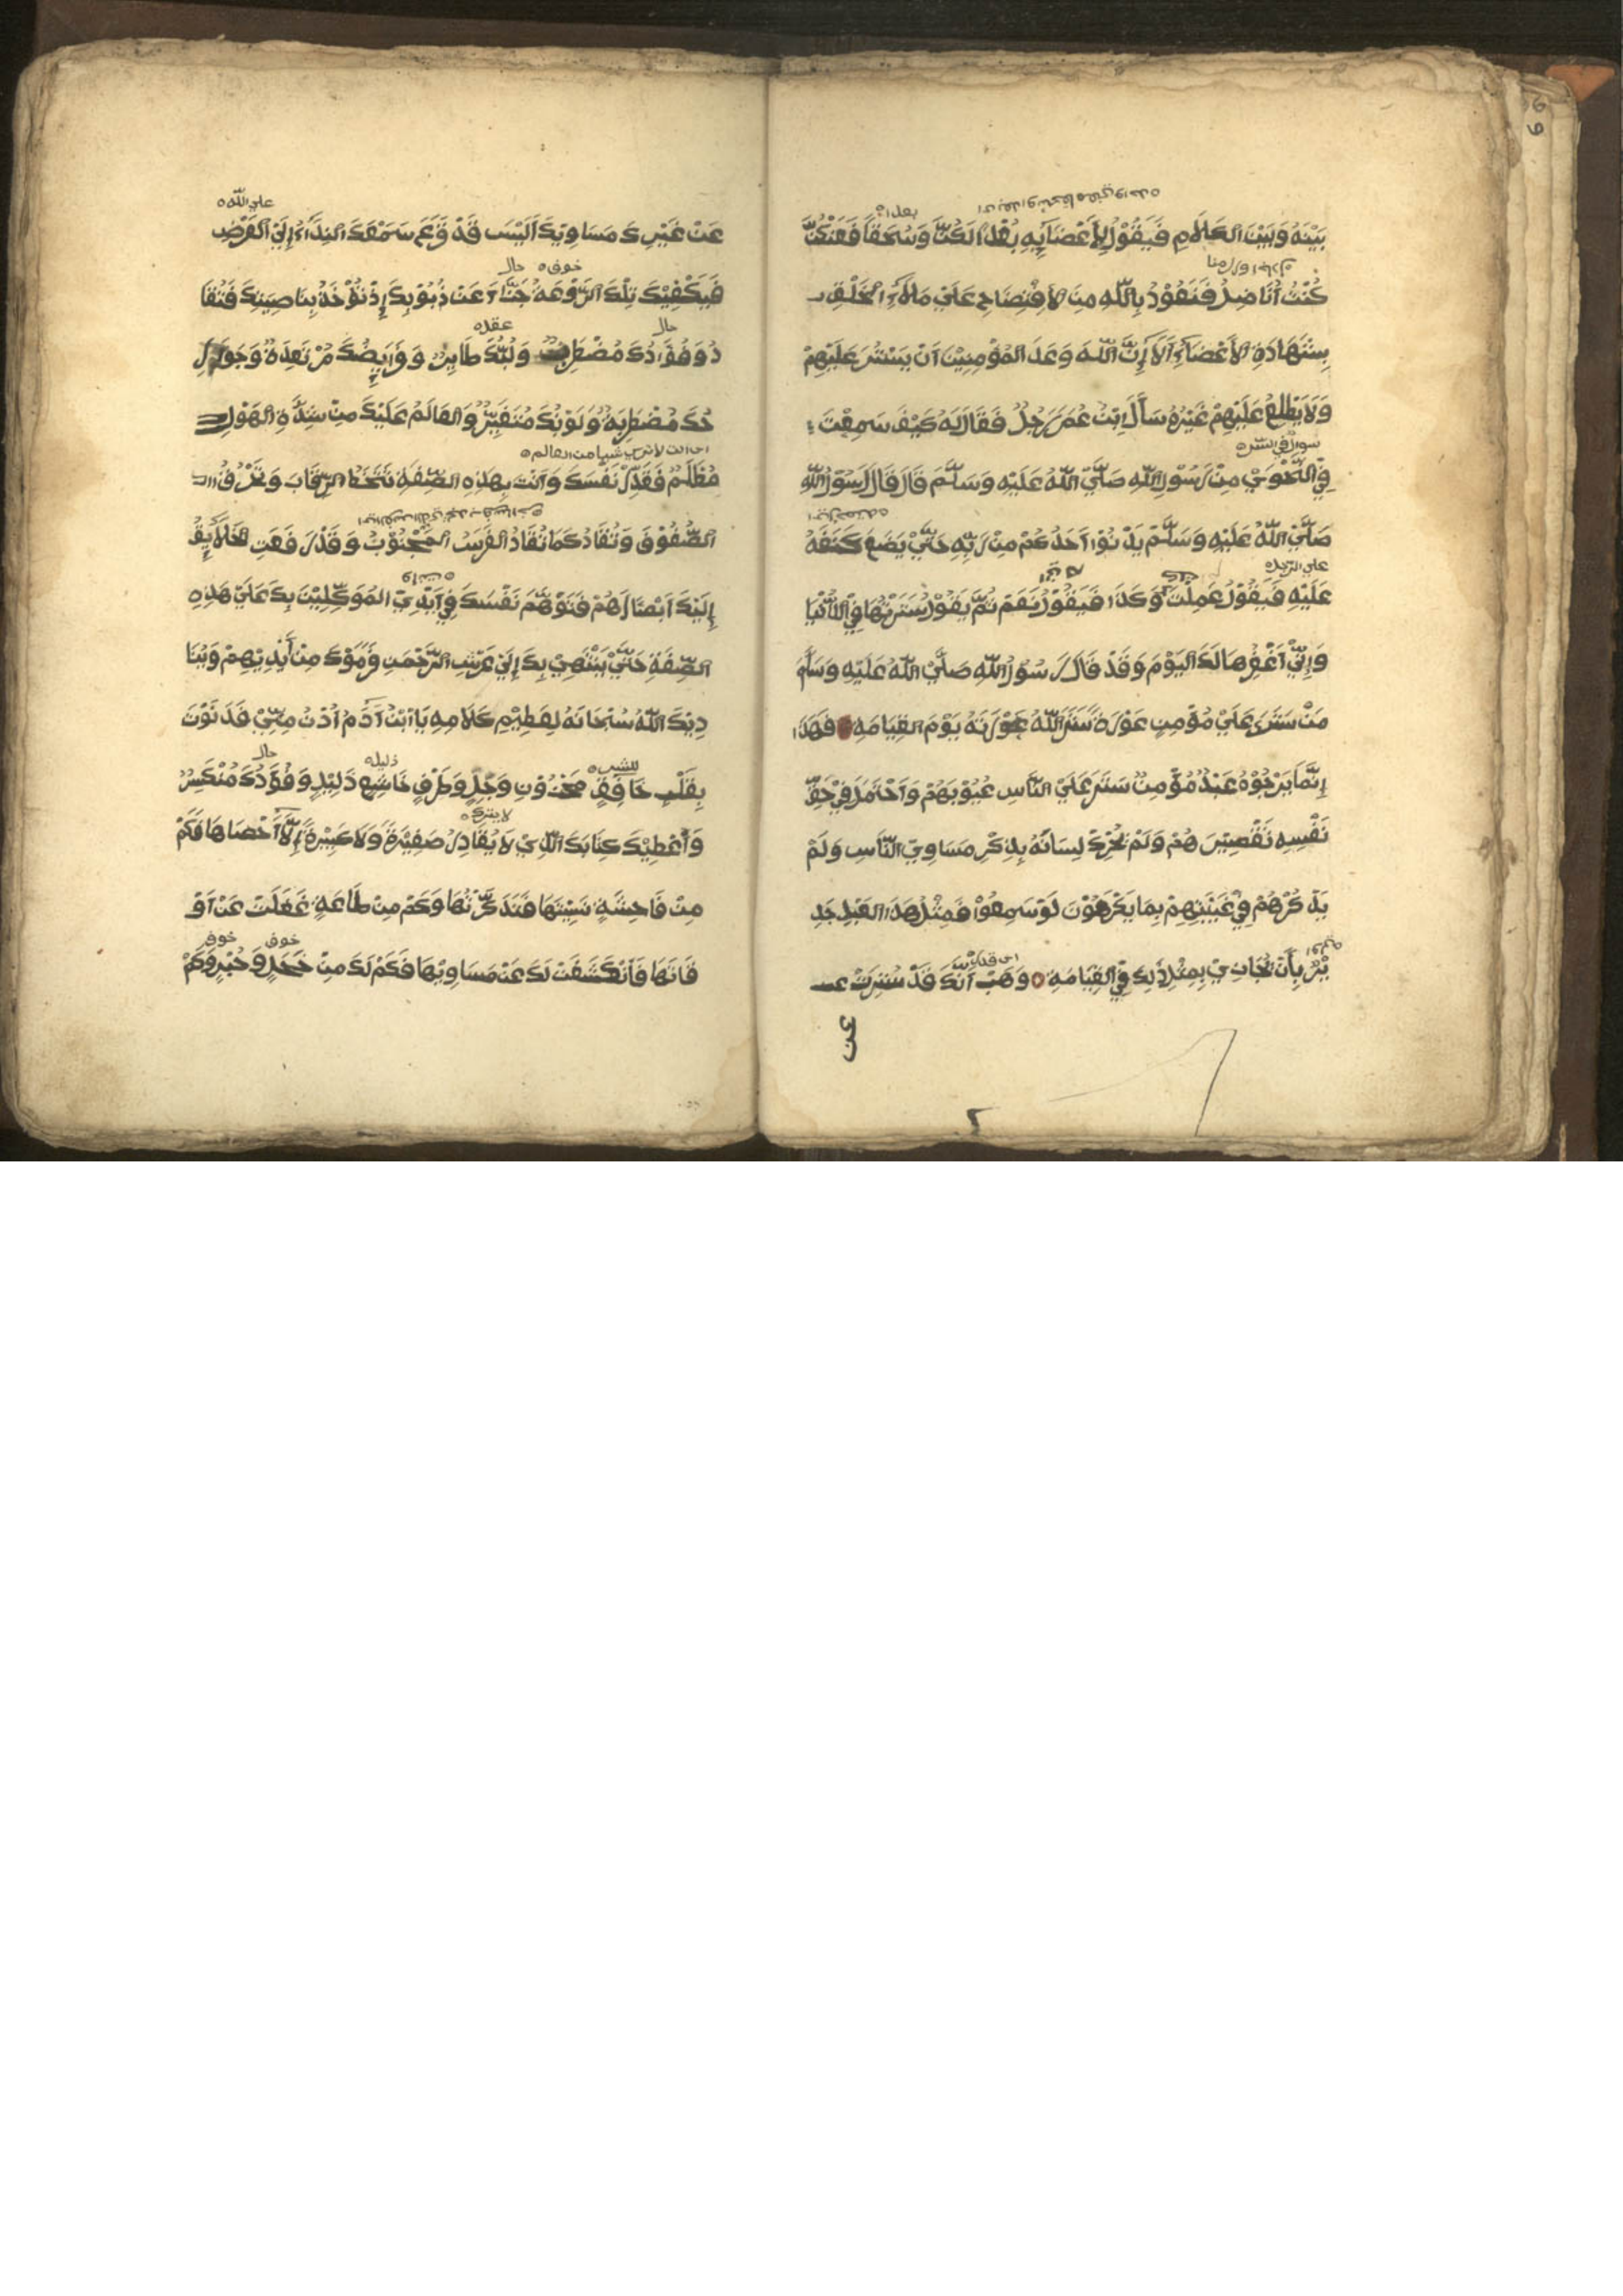 بَيْنَهُ وَبَيْنَ الكَلَامِ فَيَقُوْلُ لِأَعْضَآئِهِ بُعْدًا لَكُنَّ وَسُحْقًا فَعَنْكُنَّ
كُنْتُ أُنَاضِلُ فَنَعُوْذُ بِاللّٰهِ مِنَ الاِفْتِضَاحِ عَلَيْ مَلَاءِ الْخَلْقِ
بِشَهَادَةِ الاَعْضَآءِ اَلَا إِنَّ اللّٰهَ وَعَدَ المُؤْمِنِيْنَ اَنْ يَسْتُرَ عَلَيْهِمْ
وَلَا يَطَّلِعُ عَلَيْهِمْ غَيْرُهُ سَأَلَ ابْنَ عُمَرَ رَجُلٌ فَقَالَ لَهُ كَيْفَ سَمِعْتَ
سوال في الستره
فِي النَّجْوَيْ مِنْ رَسُوْلِ اللّٰهِ صَلَّيْ اللّٰهُ عَلَيْهِ وَسَلَّمَ قَالَ قَالَ رَسُوْلُ اللّٰهِ
صَلَّيْ اللّٰهُ عَلَيْهِ وَسَلَّمْ يَدْنُوْا اَحَدُكُمْ مِنْ رَبِّهِ حَتَّيْ يَضَعَ كَنَفَهُ
عَلَيْهِ فَيَقُوْلُ عَمِلْتَ وَكَذَا فَيَقُوْلُ نَعَمْ ثُمَّ يَقُوْلُ سَتَرْتُهَا فِيْ الدُّنْيَا
وَإِنِّيْ اَغْفِرُهَا لَكَ اليَوْمَ وَقَدْ قَالَ رَسُوْلُ اللّٰهِ صَلَّيْ اللّٰهُ عَلَيْهِ وَسَلَّمَ
مَنْ سَتَرَ عَلَيْ مُؤْمِنٍ عَوْرَةً سَتَرَ اللّٰهُ عَوْرَتَهُ يَوْمَ القِيَامَهِ فَهَذَا
إِنَّمَا يَرْجُوْهُ عَبْدٌ مُؤْمِنٌ سَتَرَ عَلَيْ النَّاسِ عُيُوْبَهُمْ وَاَحْتَمَلَ فِيْ حَقِّ
نَفْسِهِ تَقْصِيْرَهُمْ وَلَمْ يُحَرِّكْ لِسَانَهُ بِذِكْرِ مَسَاوِيْ النَّاسِ وَلَمْ
يَذْكُرْهُمْ فِيْ غَيْبَتِهِمْ بِمَا يَكْرَهُوْنَ لَوْ سَمِعُوْا فَمِثْلُ هَذَا العَبْدِ جَدِ
يْرٌ بِأَنْ يُجَازَيْ بِمِثْلِ ذَلِكَ فِيْ القِيَامَهِ ٥ وَهَبْ اَنَّكَ قَدْ سُتِرْتَ
عن
علي اللّه
عَنْ غَيْرِكَ مَسَاوِيْكَ اَلَيْسَ قَدْ قَرَعَ سَمْعَكَ النِدَآءُ إِلَيْ العَرْضِ
خوف حال
فَيَكْفِيْكَ تِلْكَ الرَّوْعَةُ جَزَآءً عَنْ ذُنُوْبِكَ إِذْ تُؤْخَذُ بِنَاصِيَتِكَ فَتُقَا
دُ وَفُؤَادُكَ مُضْطَرِبٌ وَلُبُّكَ طَايِرٌ وَفَرَايِصُكَ مُرْتَعِدَةٌ وَجَوَارِ
حُكَ مُضْطَرِبَةٌ وَلَوْنُكَ مُتَغَيِّرٌ وَالعَالَمُ عَلَيْكَ مِنْ شِدَّةِ الهَوْلِ
مُظْلِمٌ فَقَدِّرْ نَفْسَكَ وَاَنْتَ بِهَذِهِ الصِّفَةِ تَتَخَطَّا الرِّقَابَ وَتَخْرُقُ
الصُّفُوْفَ وَتُقَادُ كَمَا تُقَادُ الفَرَسُ الْمَجْنُوْبُ وَقَدْ رَفَعَ الخَلَايِقُ
إِلَيْكَ اَبْصَارَهُمْ فَتَوَهَّمْ نَفْسَكَ فِيْ اَيْدِيْ المُوَكِّلِيْنَ بِكَ عَلَيْ هَذِهِ
الصِّفَةِ حَتَّيْ يَنْتَهِيْ بِكَ إِلَيْ عَرْشِ الرَّحْمَنِ وَرَمَوْكَ مِنْ أَيْدِيْهِمْ وَيُنَا
دِيْكَ اللّٰهُ سُبْحَانَهُ لِعَظِيْمِ كَلَامِهِ يَا ابْنَ آدَمُ اُدْنُ مِنِّيْ فَدَنَوْتَ
بِقَلْبٍ خَافِقٍ مَحْزُوْنٍ وَجِلٍ وَطَرْفٍ خَاشِعٍ ذَلِيْلٍ وَفُؤَادُكَ مُنْكَسِرٌ
لا يترك
وَأُعْطِيْكَ كِتَابَكَ الَّذِيْ لَا يُغَادِرُ صَغِيْرَةً وَلَا كَبِيْرَةً إِلَّا اَحْصَاهَا فَكَمْ
مِنْ فَاحِشَةٍ نَسِيْتَهَا فَتَذَكَّرْتُهَا وَكَمْ مِنْ طَاعَةٍ غَفَلْتَ عَنْ اَفَ
فَاتَهَا فَاَنْكَشَفَتْ لَكَ عَنْ مَسَاوِيْهَا فَكَمْ لَكَ مِنْ خَجَلٍ وَجُبْنٍ وَكَمْ